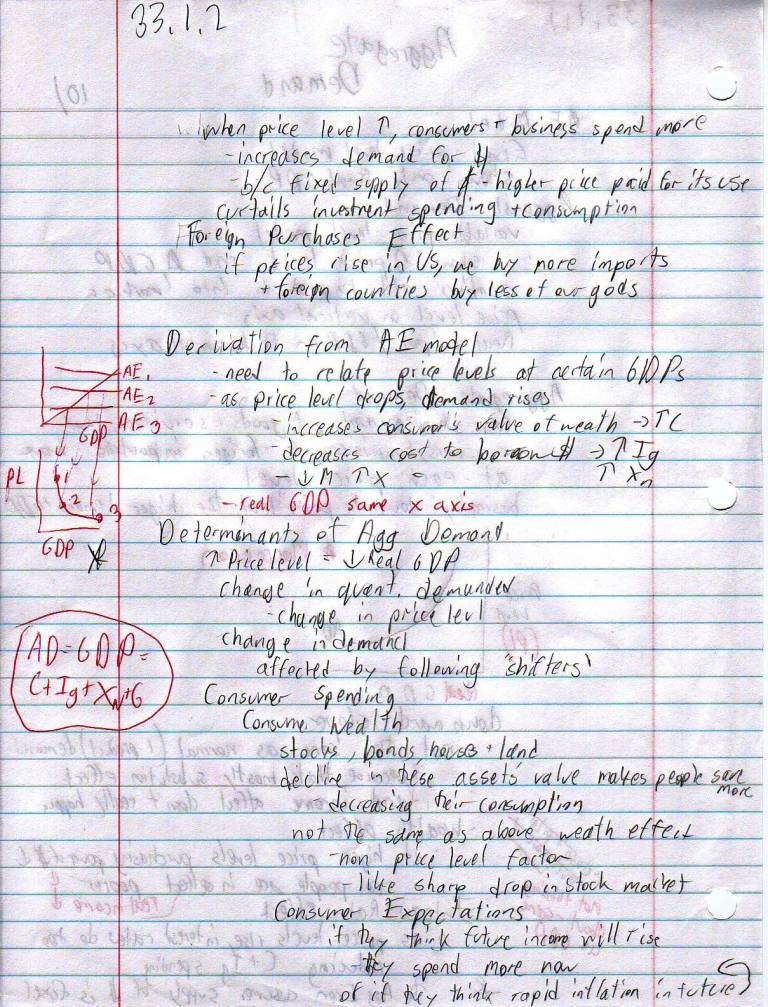 33.1.2
When price level ↑, consumers + business spend more
- increases demand for $
- b/c fixed supply of $ - higher price paid for its use
curtails investment spending + consumption
Foreign Purchases Effect
if prices rise in US, we buy more imports
+ foreign countries buy less of our gods
Derivation from AE model
- need to relate price levels at certain GDPs
- as price level drops, demand rises
- increases consumer's value of weath → ↑C
- decreases cost to borrow $ → ↑ Ig
- ↓ M ↑ X ↑ Xn
- real GDP same x axis
AE1
AE2
AE3
GDP
PL
1
2
3
GDP
Determinants of Agg Demand
↑ Price level = ↓ Real GDP
change in quant. demanded
- change in price levl
change in demand
affected by following "shifters"
AD=GDP=
C+Ig+Xn+G
Consumer Spending
Consumer Wealth
stocks, bonds, houses + land
decline in these assets' value makes people save more
decreasing their consumption
not the same as above weath effect
- non price level factor
- like sharp drop in stock market
Consumer Expectations
if they think future income will rise
they spend more now
or if they think rapid inflation in future